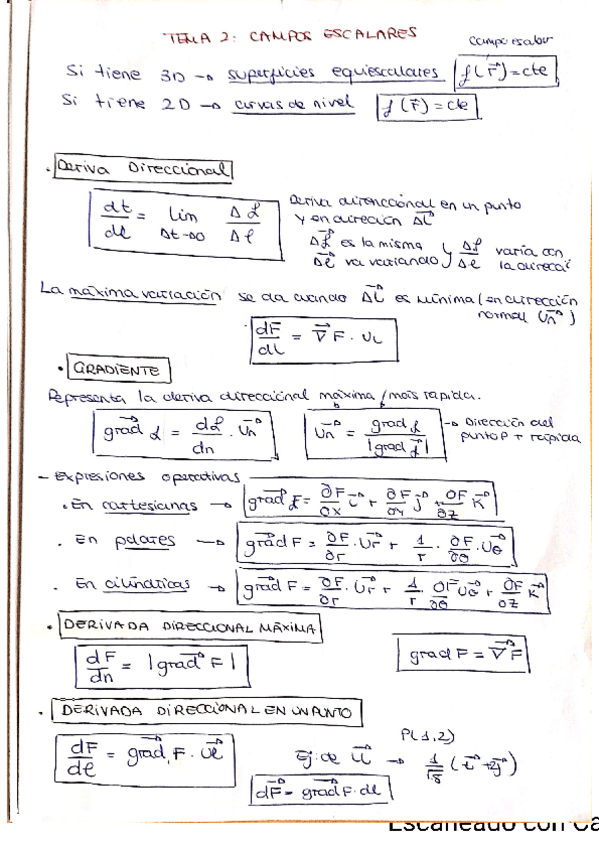 TEMA 2: CAMPOS ESCALARES
campo escalar
Si tiene 3D → superficies equiescalares f(r⃗)=cte
Si tiene 2D → curvas de nivel f(r⃗)=cte
· Deriva Direccional
dt/dl = lim Δt→0 Δf/Δl
Deriva direccional en un punto
y en dirección Δl⃗
Δf es la misma y Δf/Δl varía con
Δl⃗ va variando la direcc
La máxima variación se da cuando Δl⃗ es mínima (en dirección
normal (Un⃗)
dF/dl = ∇⃗F · UL
· GRADIENTE
Representa la deriva direccional máxima / más rápida.
grad⃗ f = df/dn · Un⃗
Un⃗ = grad f / |grad f|
→ Dirección del
punto P + rápida
- Expresiones operativas
· En cartesianas → grad⃗ f = ∂F/∂x i⃗ + ∂F/∂y j⃗ + ∂F/∂z k⃗
· En polares → grad⃗ F = ∂F/∂r · Ur⃗ + 1/r · ∂F/∂θ · Uθ⃗
· En cilíndricas → grad⃗ F = ∂F/∂r · Ur⃗ + 1/r ∂F/∂θ Uθ⃗ + ∂F/∂z k⃗
· DERIVADA DIRECCIONAL MÁXIMA
dF/dn = |grad⃗ F|
grad F = ∇⃗F
· DERIVADA DIRECCIONAL EN UN PUNTO
P(1,2)
dF/dl = grad⃗ F · ul⃗
Ej. de u⃗ → 1/√5 (i⃗ + 2j⃗)
dF⃗ = grad⃗ F · dl
Escaneado con Ca